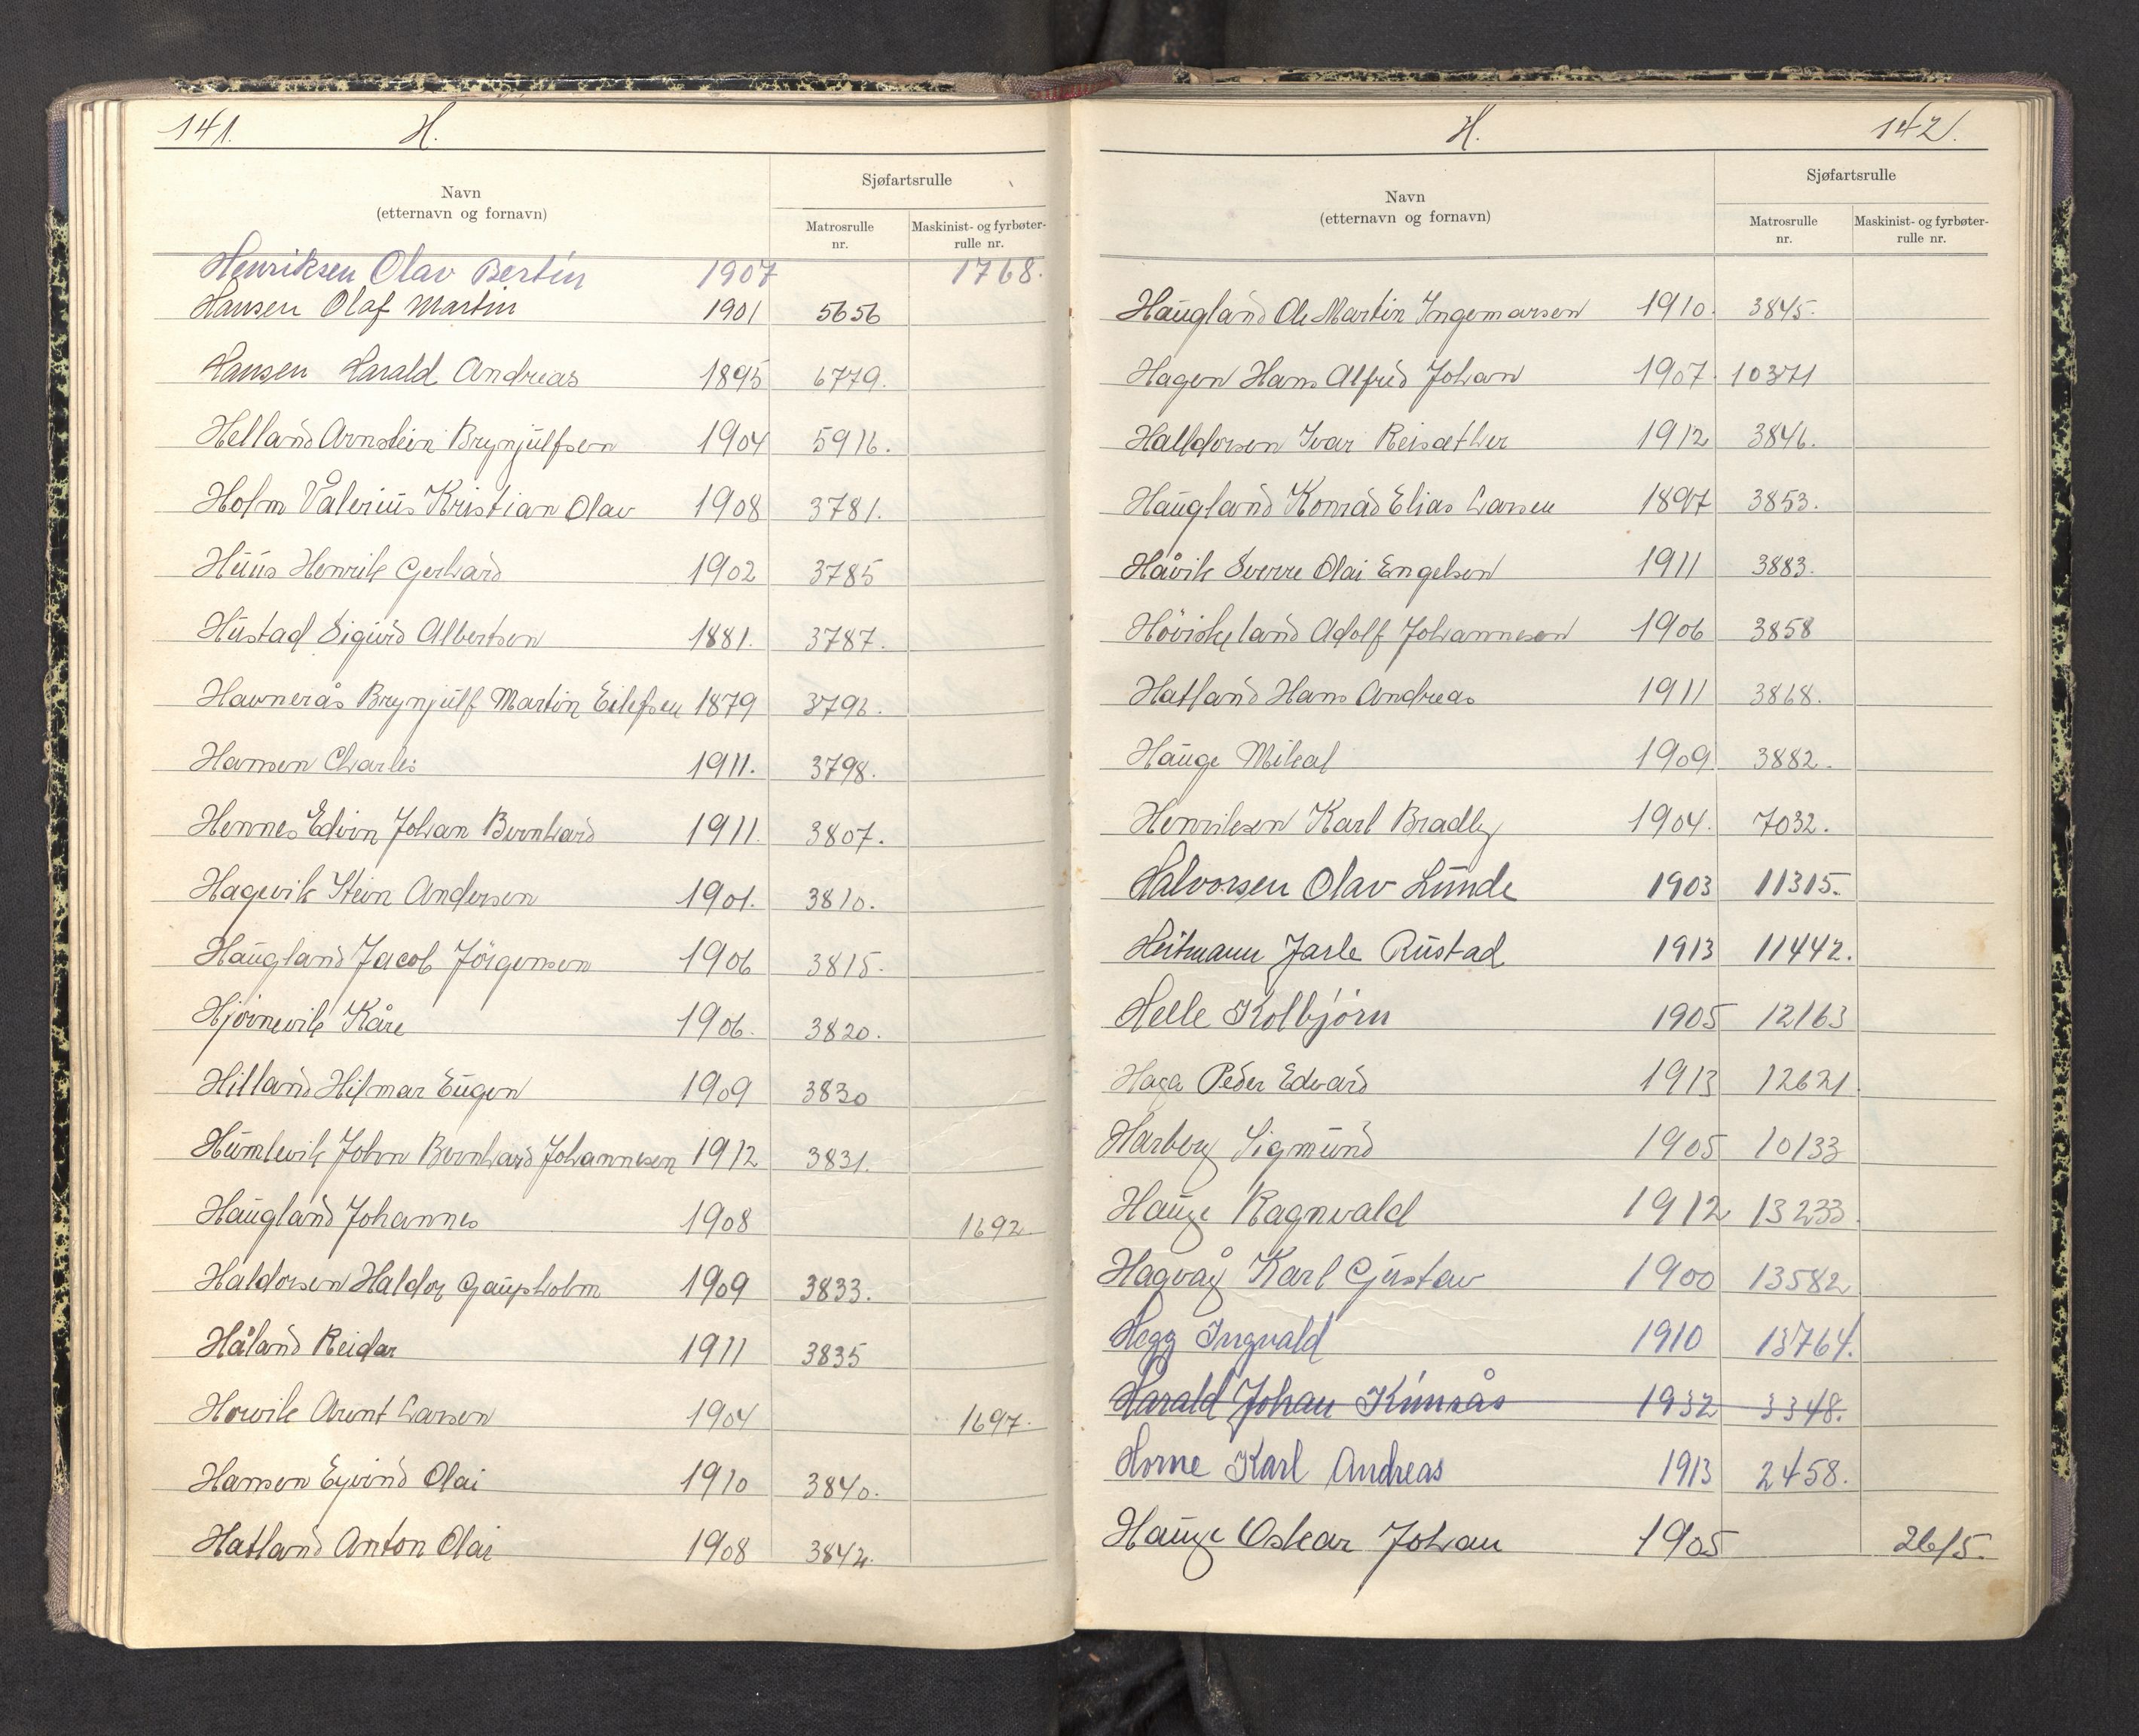 141. H.
Navn
(etternavn og fornavn)
Sjøfartsrulle
Matrosrulle
nr.
Maskinist- og fyrbøter-
rulle nr.
Henriksen Olav Bertin 1907 1768.
Hansen Olaf Martin 1901 5656
Hansen Harald Andreas 1895 6779.
Helland Arnstein Brynjulfsen 1904 5916.
Holm Valerius Kristian Olav 1908 3781.
Huus Henrik Gerhard 1902 3785
Hustad Sigurd Albertsen 1881. 3787.
Havnerås Brynjulf Martin Eilefsen 1879 3796.
Hansen Charles 1911. 3798.
Hennes Edvin Johan Bernhard 1911. 3807.
Hagevik Stein Andersen 1901. 3810.
Haugland Jacob Jörgensen 1906 3815.
Hjörnevik Kåre 1906. 3820.
Hilland Hilmar Eugen 1909 3830
Humlevik John Bernhard Johannesen 1912 3831.
Haugland Johannes 1908 1692
Haldorsen Haldor Gaupholm 1909 3833.
Håland Reidar 1911 3835
Hovik Arent Larsen 1904 1697.
Hansen Eyvind Olai 1910 3840.
Hatland Anton Olai 1908 3842.
H. 142.
Navn
(etternavn og fornavn)
Sjøfartsrulle
Matrosrulle
nr.
Maskinist- og fyrbøter-
rulle nr.
Haugland Ole Martin Ingemarsen 1910. 3845.
Hagen Hans Alfred Johan 1907. 10371
Halldorsen Ivar Reisæther 1912 3846.
Haugland Konrad Elias Larsen 1897 3853.
Håvik Sverre Olai Engelsen 1911 3883.
Höviskeland Adolf Johannesen 1906 3858
Hatland Hans Andreas 1911 3868.
Hauge Mikal 1909 3882.
Henriksen Karl Bradley 1904. 7032.
Halvorsen Olav Lunde 1903 11315.
Heitmann Jarle Rustad 1913 11442.
Helle Kolbjörn 1905 12163
Haga Peder Edvard 1913 12621
Harberg Sigmund 1905 10133
Hauge Ragnvald 1912 13233
Hagvåg Karl Gustav 1900 13582
Hegg Ingvald 1910 13764.
Harald Johan Kinsås 1932 3348.
Horne Karl Andreas 1913 2458.
Hauge Oskar Johan 1905 2615.